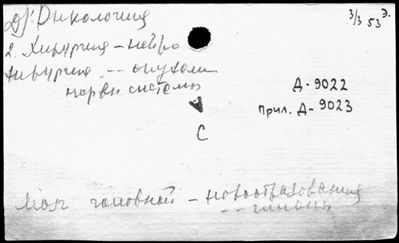 Онкология
3/3 53 Э.
2. Хирургия – нейро
хирургия -- опухоли
нервн. системы
Д - 9022
Прил. Д - 9023
С
Мозг головной – новообразования